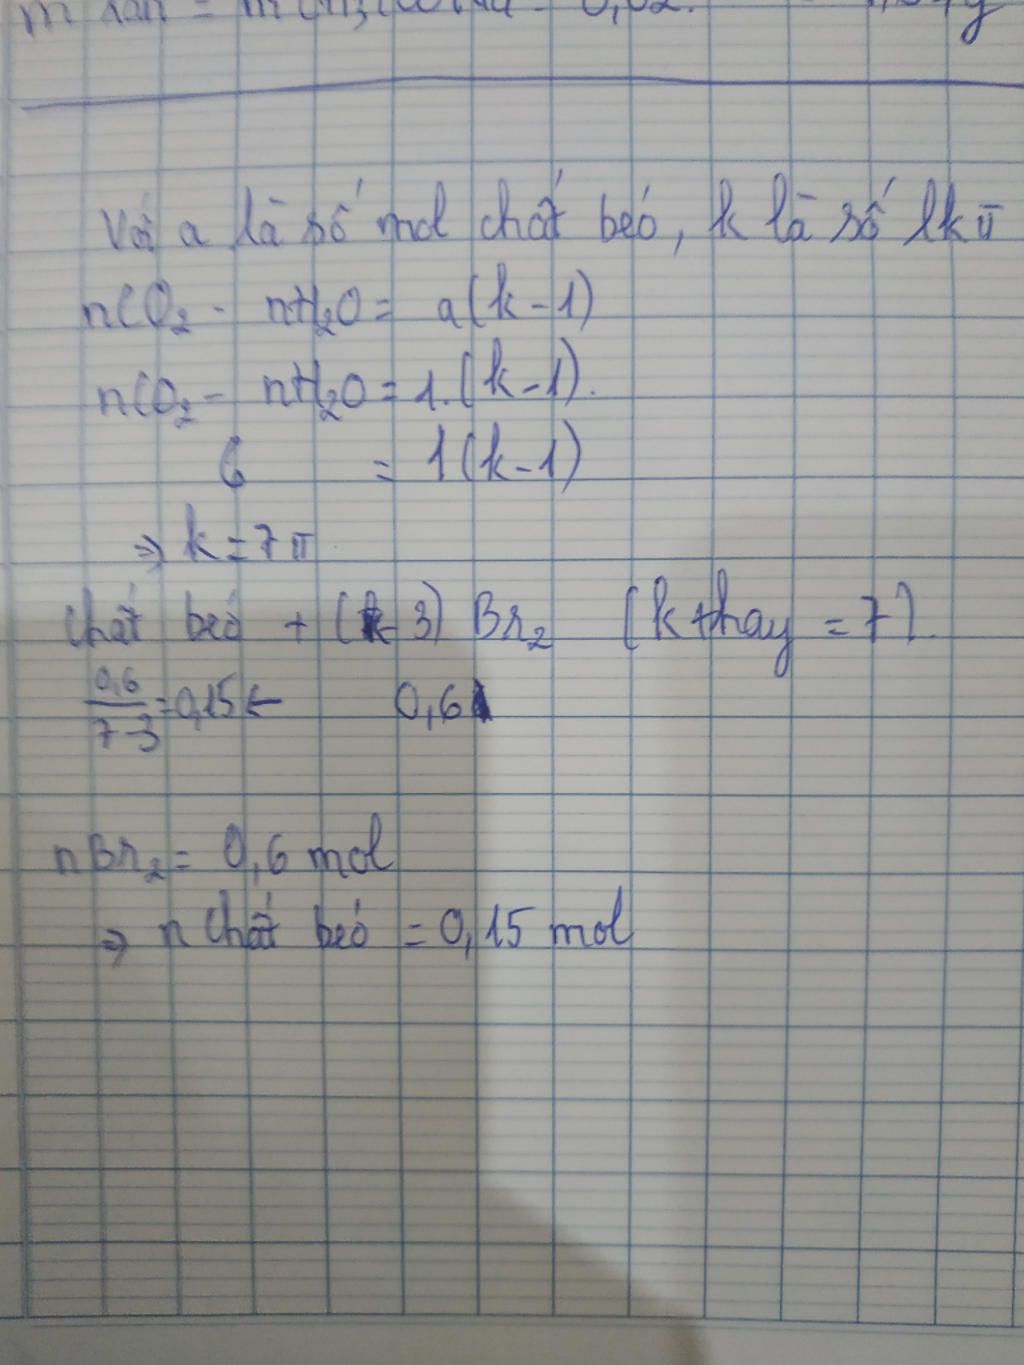 Với a là số mol chất béo, k là số lk π
nCO₂ - nH₂O = a(k-1)
nCO₂ - nH₂O = 1.(k-1).
6 = 1(k-1)
⇒ k = 7 π
chất béo + (k-3) Br₂ (k thay = 7).
0,6/7-3 = 0,15 ← 0,6
nBr₂ = 0,6 mol
⇒ n chất béo = 0,15 mol